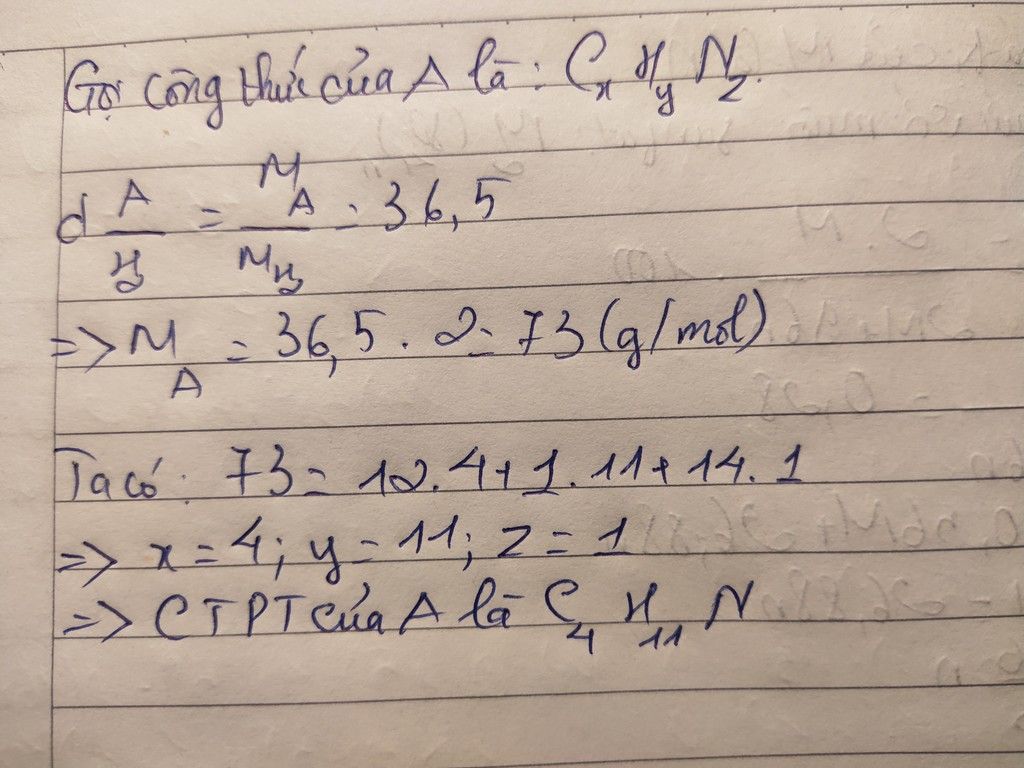 Gọi công thức của A là: CxHyNz.
d A/H2 = MA/MH2 = 36,5
=> MA = 36,5 . 2 = 73 (g/mol)
Ta có: 73 = 12.4 + 1.11 + 14.1
=> x = 4; y = 11; z = 1
=> CTPT của A là C4H11N